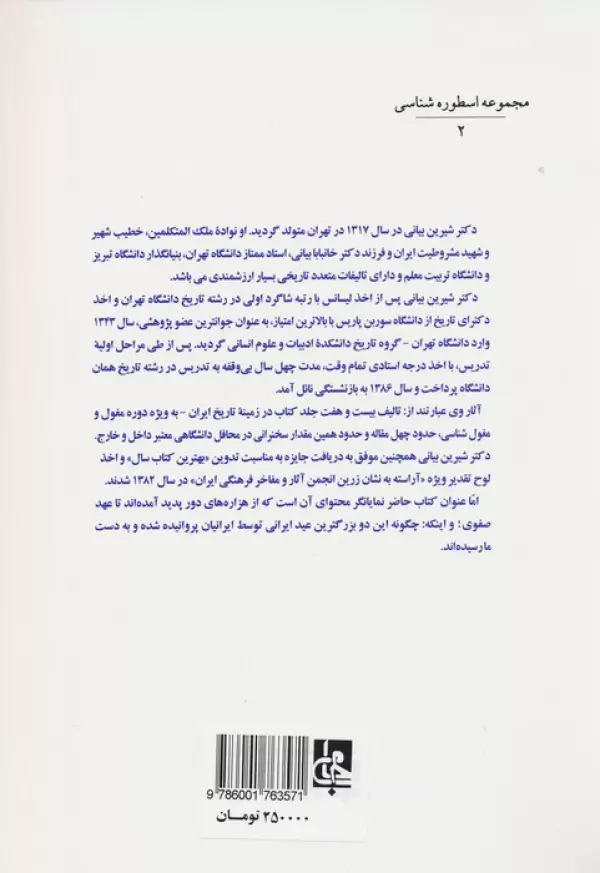 مجموعه اسطوره شناسی
۲
دکتر شیرین بیانی در سال ۱۳۱۷ در تهران متولد گردید. او نوادهٔ ملک المتکلمین، خطیب شهیر
و شهید مشروطیت ایران و فرزند دکتر خانبابا بیانی، استاد ممتاز دانشگاه تهران، بنیانگذار دانشگاه تبریز
و دانشگاه تربیت معلم و دارای تالیفات متعدد تاریخی بسیار ارزشمندی می باشد.
دکتر شیرین بیانی پس از اخذ لیسانس با رتبه شاگرد اولی در رشته تاریخ دانشگاه تهران و اخذ
دکترای تاریخ از دانشگاه سوربن پاریس با بالاترین امتیاز، به عنوان جوانترین عضو پژوهشی، سال ۱۳۴۳
وارد دانشگاه تهران - گروه تاریخ دانشکدهٔ ادبیات و علوم انسانی گردید. پس از طی مراحل اولیهٔ
تدریس، با اخذ درجه استادی تمام وقت، مدت چهل سال بی‌وقفه به تدریس در رشته تاریخ همان
دانشگاه پرداخت و سال ۱۳۸۶ به بازنشستگی نائل آمد.
آثار وی عبارتند از: تالیف بیست و هفت جلد کتاب در زمینهٔ تاریخ ایران - به ویژه دوره مغول و
مغول شناسی، حدود چهل مقاله و حدود همین مقدار سخنرانی در محافل دانشگاهی معتبر داخل و خارج.
دکتر شیرین بیانی همچنین موفق به دریافت جایزه به مناسبت تدوین «بهترین کتاب سال» و اخذ
لوح تقدیر ویژه «آراسته به نشان زرین انجمن آثار و مفاخر فرهنگی ایران» در سال ۱۳۸۲ شدند.
امّا عنوان کتاب حاضر نمایانگر محتوای آن است که از هزاره‌های دور پدید آمده‌اند تا عهد
صفوی؛ و اینکه: چگونه این دو بزرگترین عید ایرانی توسط ایرانیان پروانیده شده و به دست
ما رسیده‌اند.
9 786001 763571
۲۵۰۰۰۰ تومــان